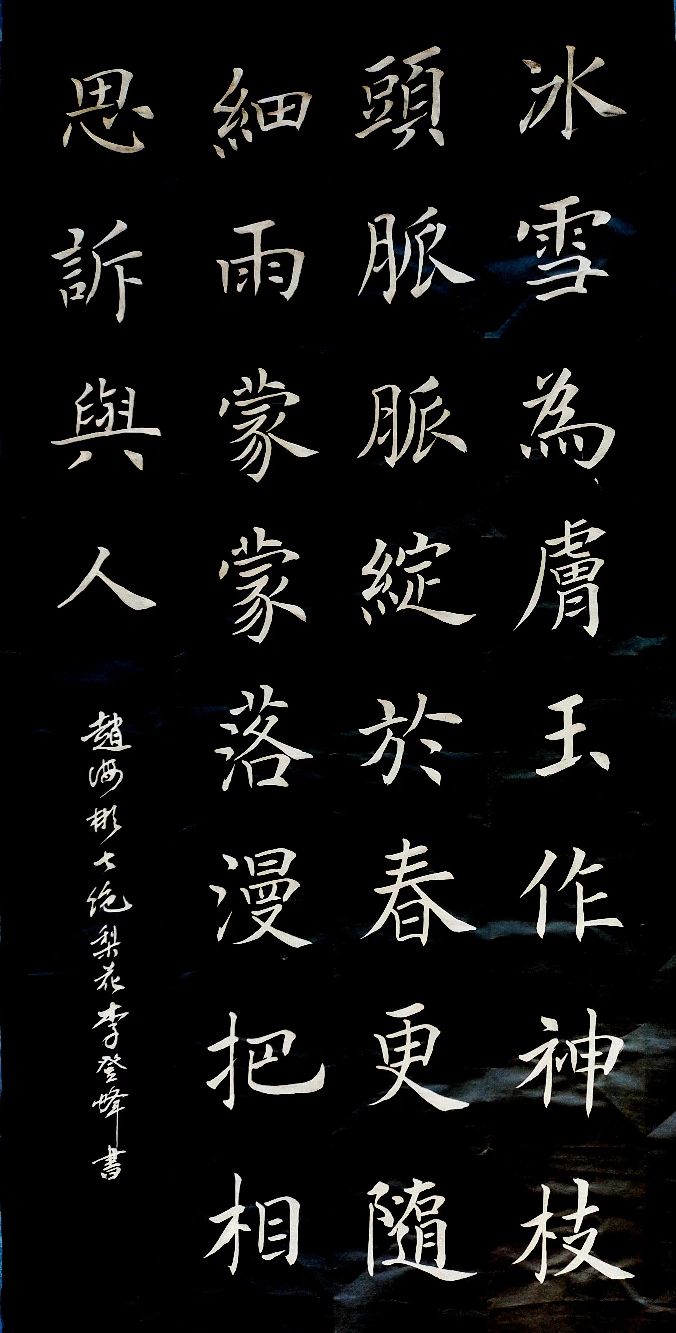 冰雪為膚玉作神枝
頭脈脈綻於春更隨
細雨蒙蒙落漫把相
思訴與人
趙海彬七絕梨花李登峰書